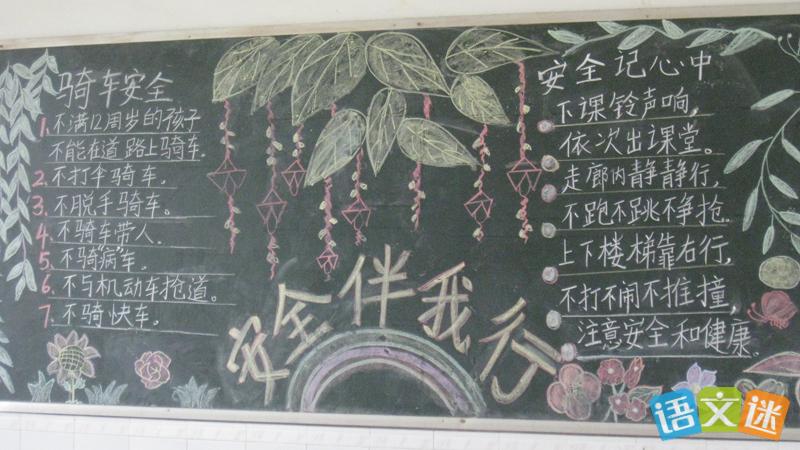 骑车安全
1. 不满12周岁的孩子
不能在道路上骑车.
2. 不打伞骑车.
3. 不脱手骑车。
4. 不骑车带人.
5. 不骑"病"车.
6. 不与机动车抢道。
7. 不骑快车.
安全伴我行
安全记心中
下课铃声响,
依次出课堂。
走廊内静静行,
不跑不跳不争抢.
上下楼梯靠右行,
不打不闹不推撞,
注意安全和健康.
语文迷